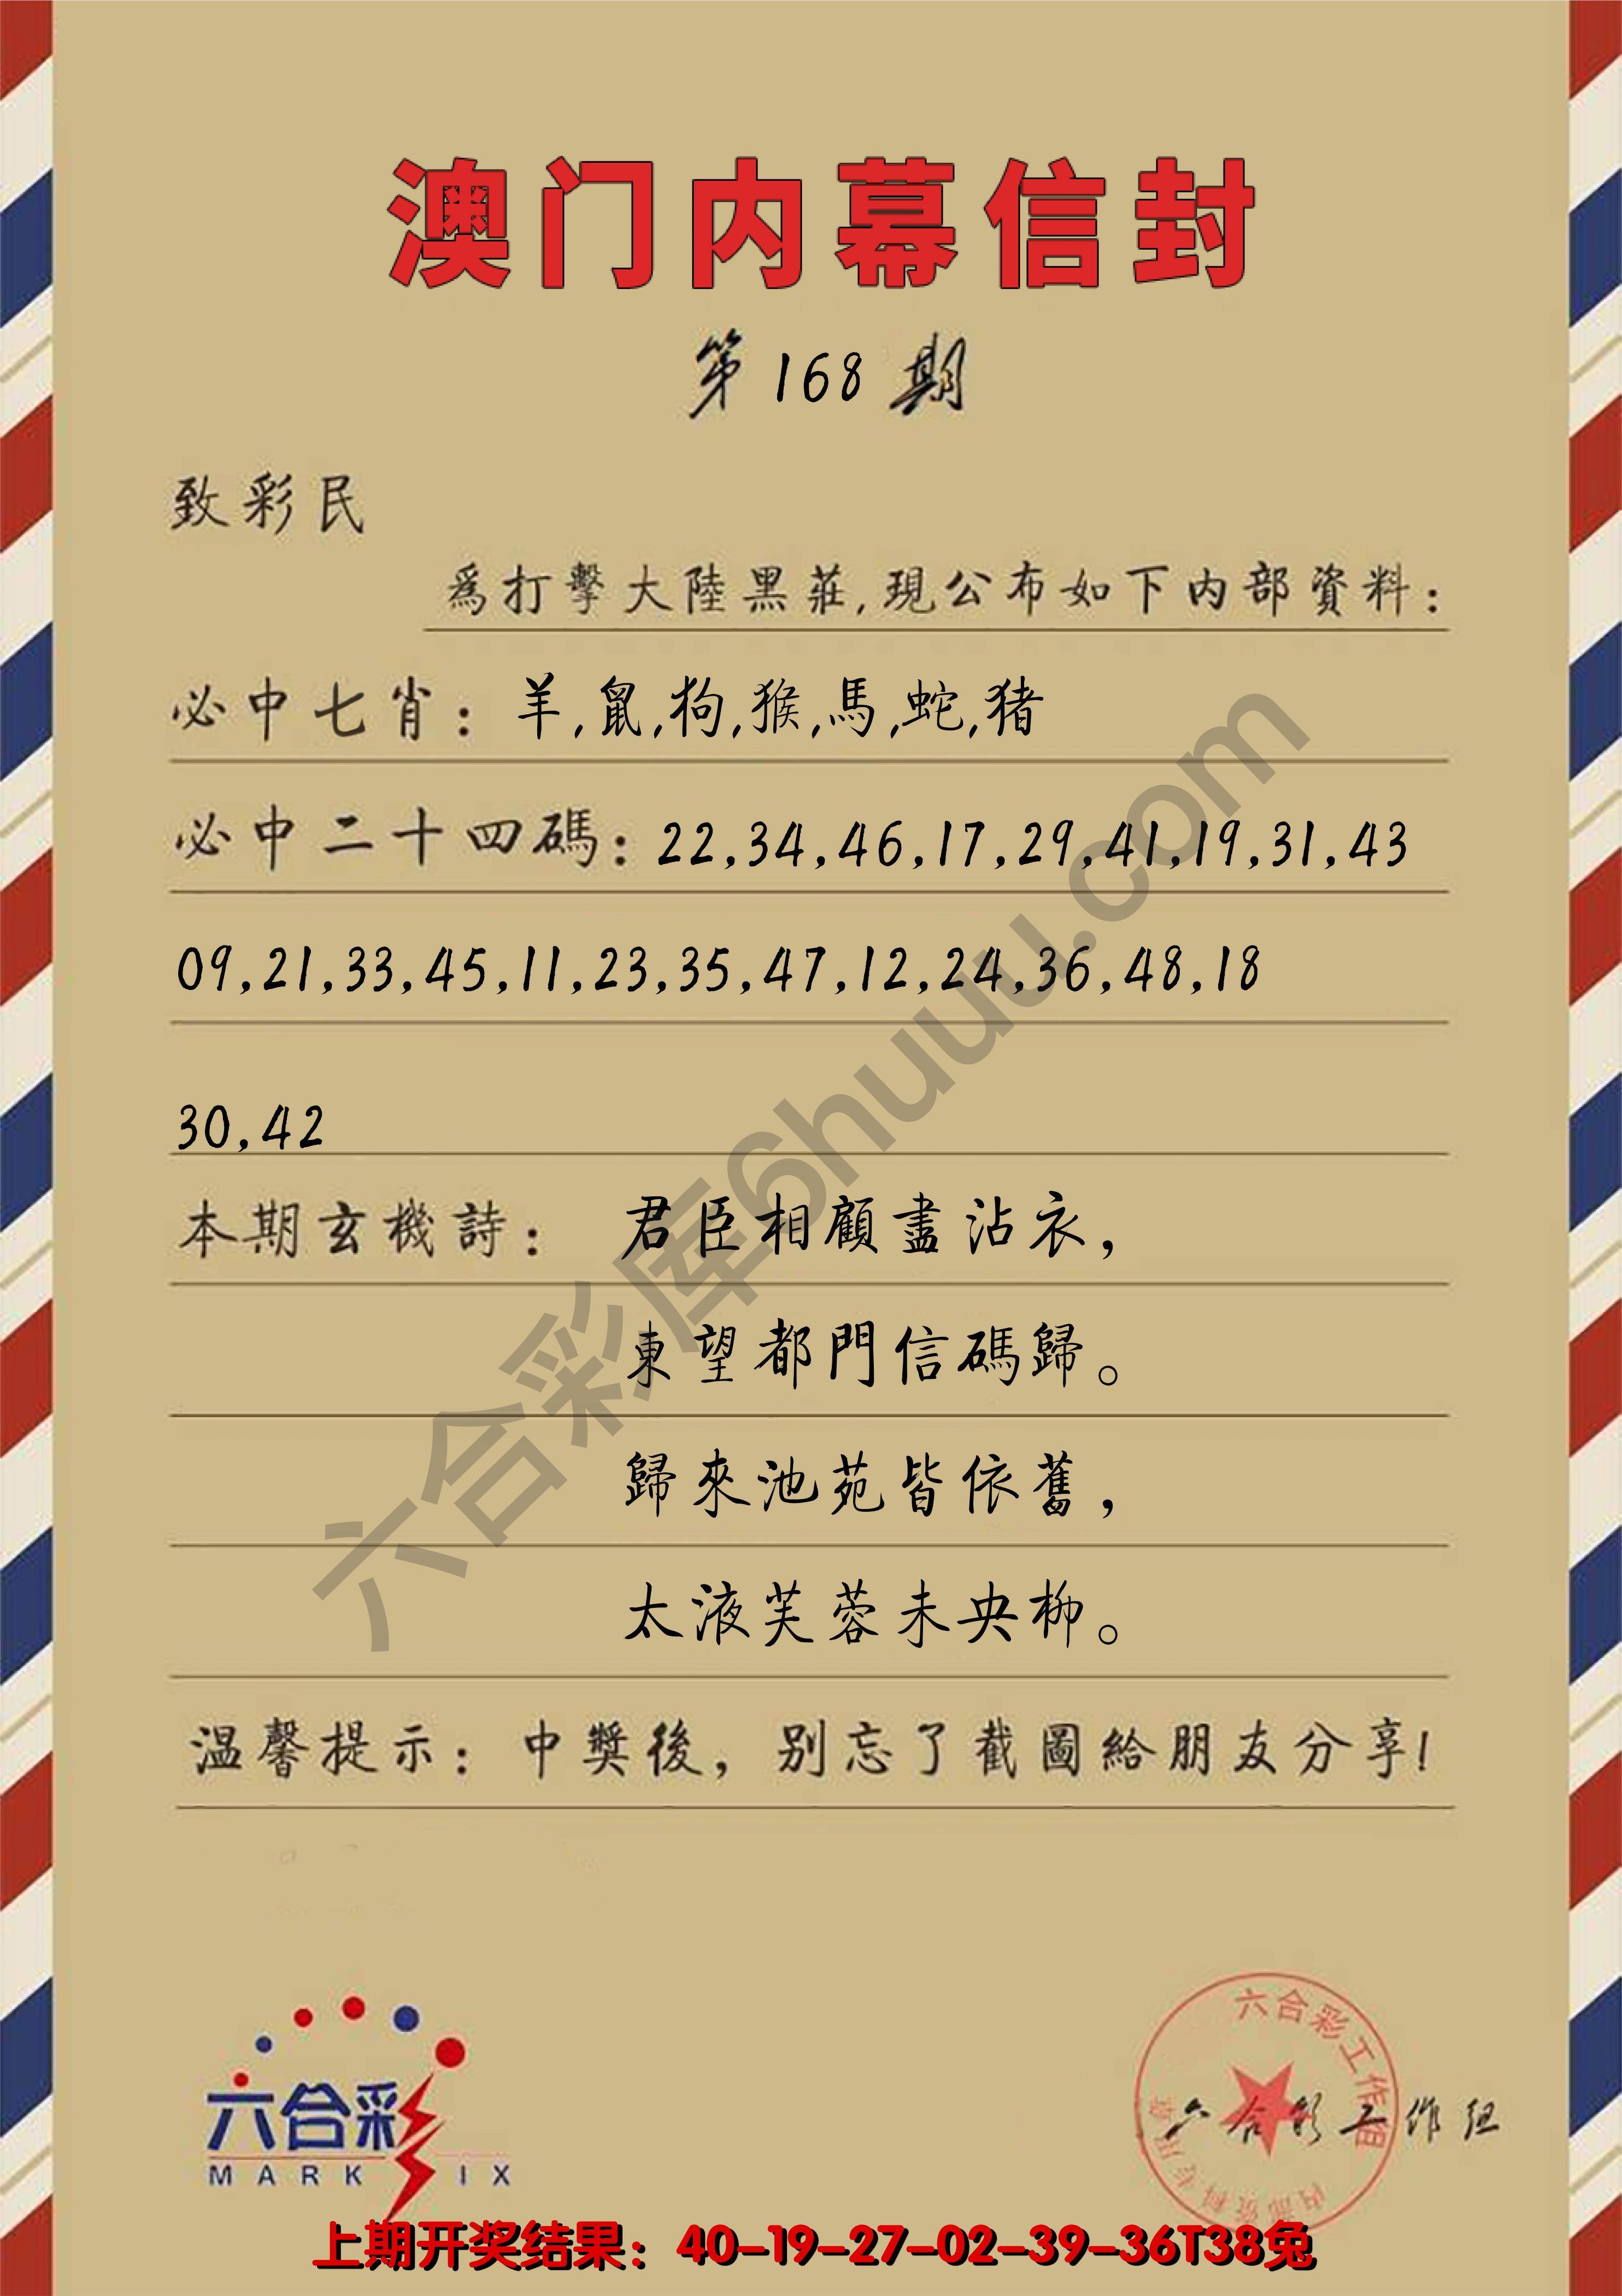 澳门内幕信封
第168期
致彩民
為打擊大陸黑莊,現公布如下内部資料:
必中七肖: 羊,鼠,狗,猴,馬,蛇,猪
必中二十四碼: 22,34,46,17,29,41,19,31,43
09,21,33,45,11,23,35,47,12,24,36,48,18
30,42
本期玄機詩: 君臣相顧盡沾衣,
東望都門信碼歸。
歸來池苑皆依舊,
太液芙蓉未央柳。
温馨提示: 中獎後,别忘了截圖給朋友分享!
六合彩库6huuu.com
六合彩
MARK IX
六合彩工作组
内部资料专用章
六合彩工作组
上期开奖结果: 40-19-27-02-39-36T38兔